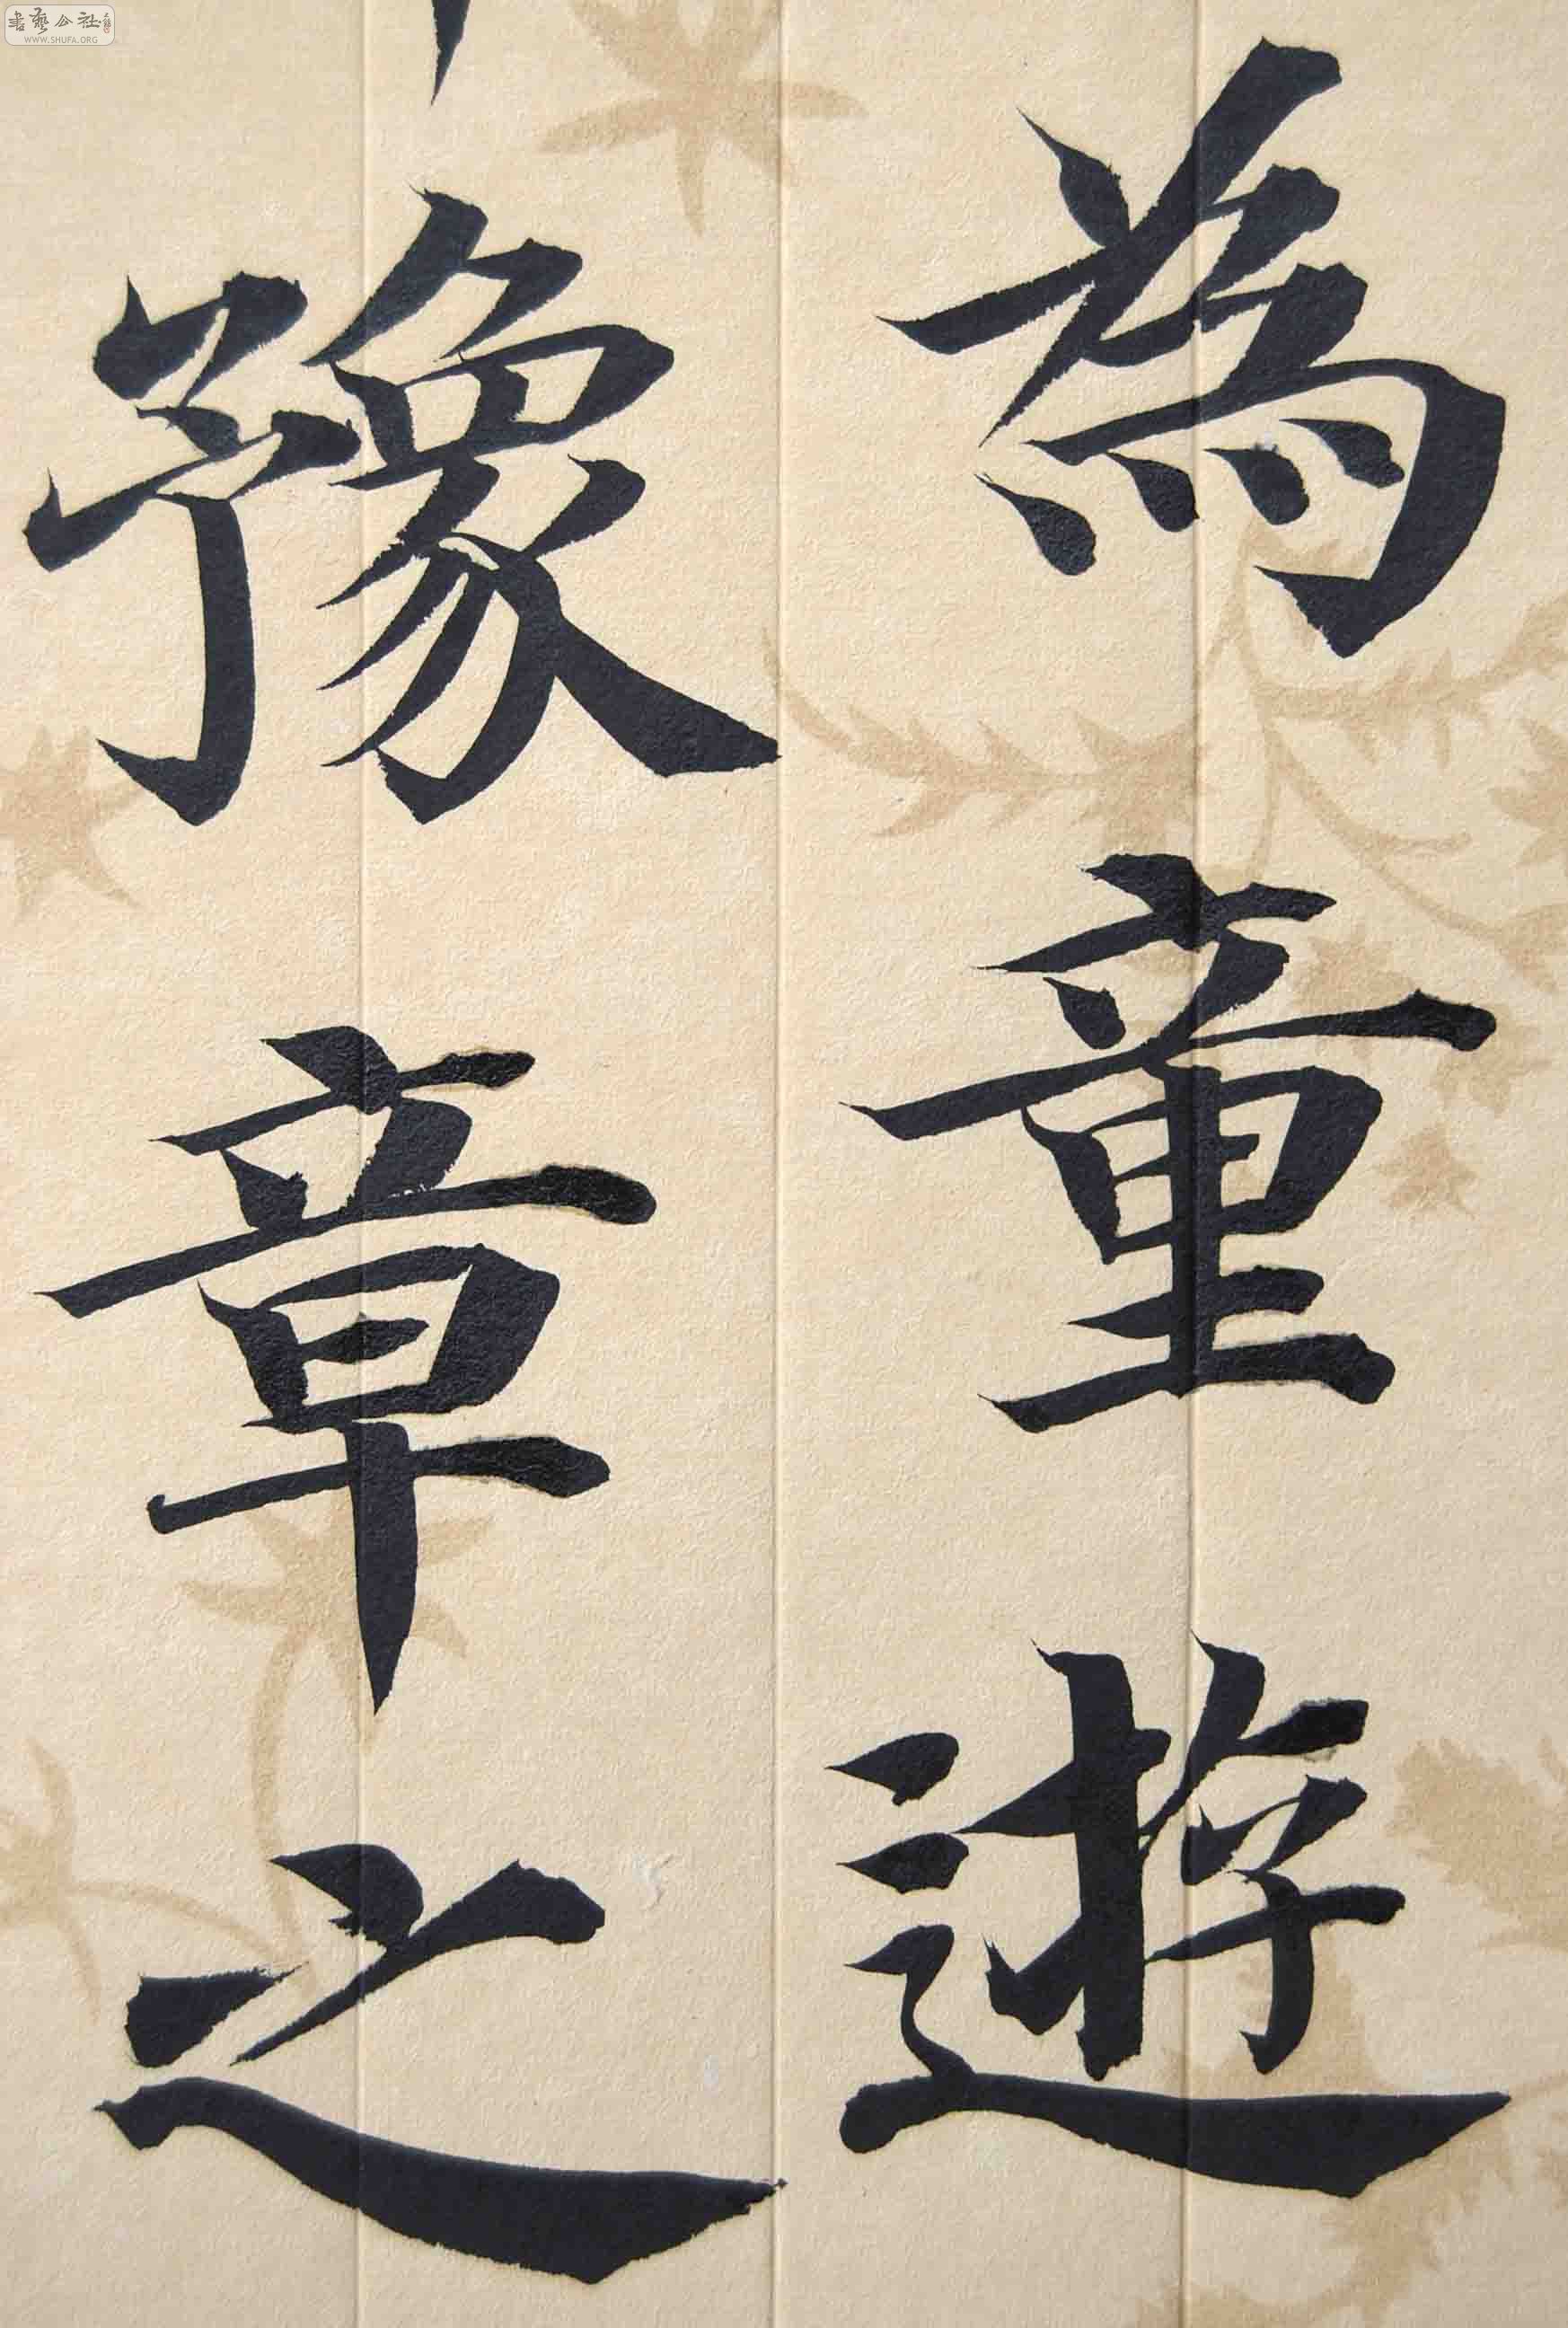 為童遊
豫章之
書藝公社
WWW.SHUFA.ORG